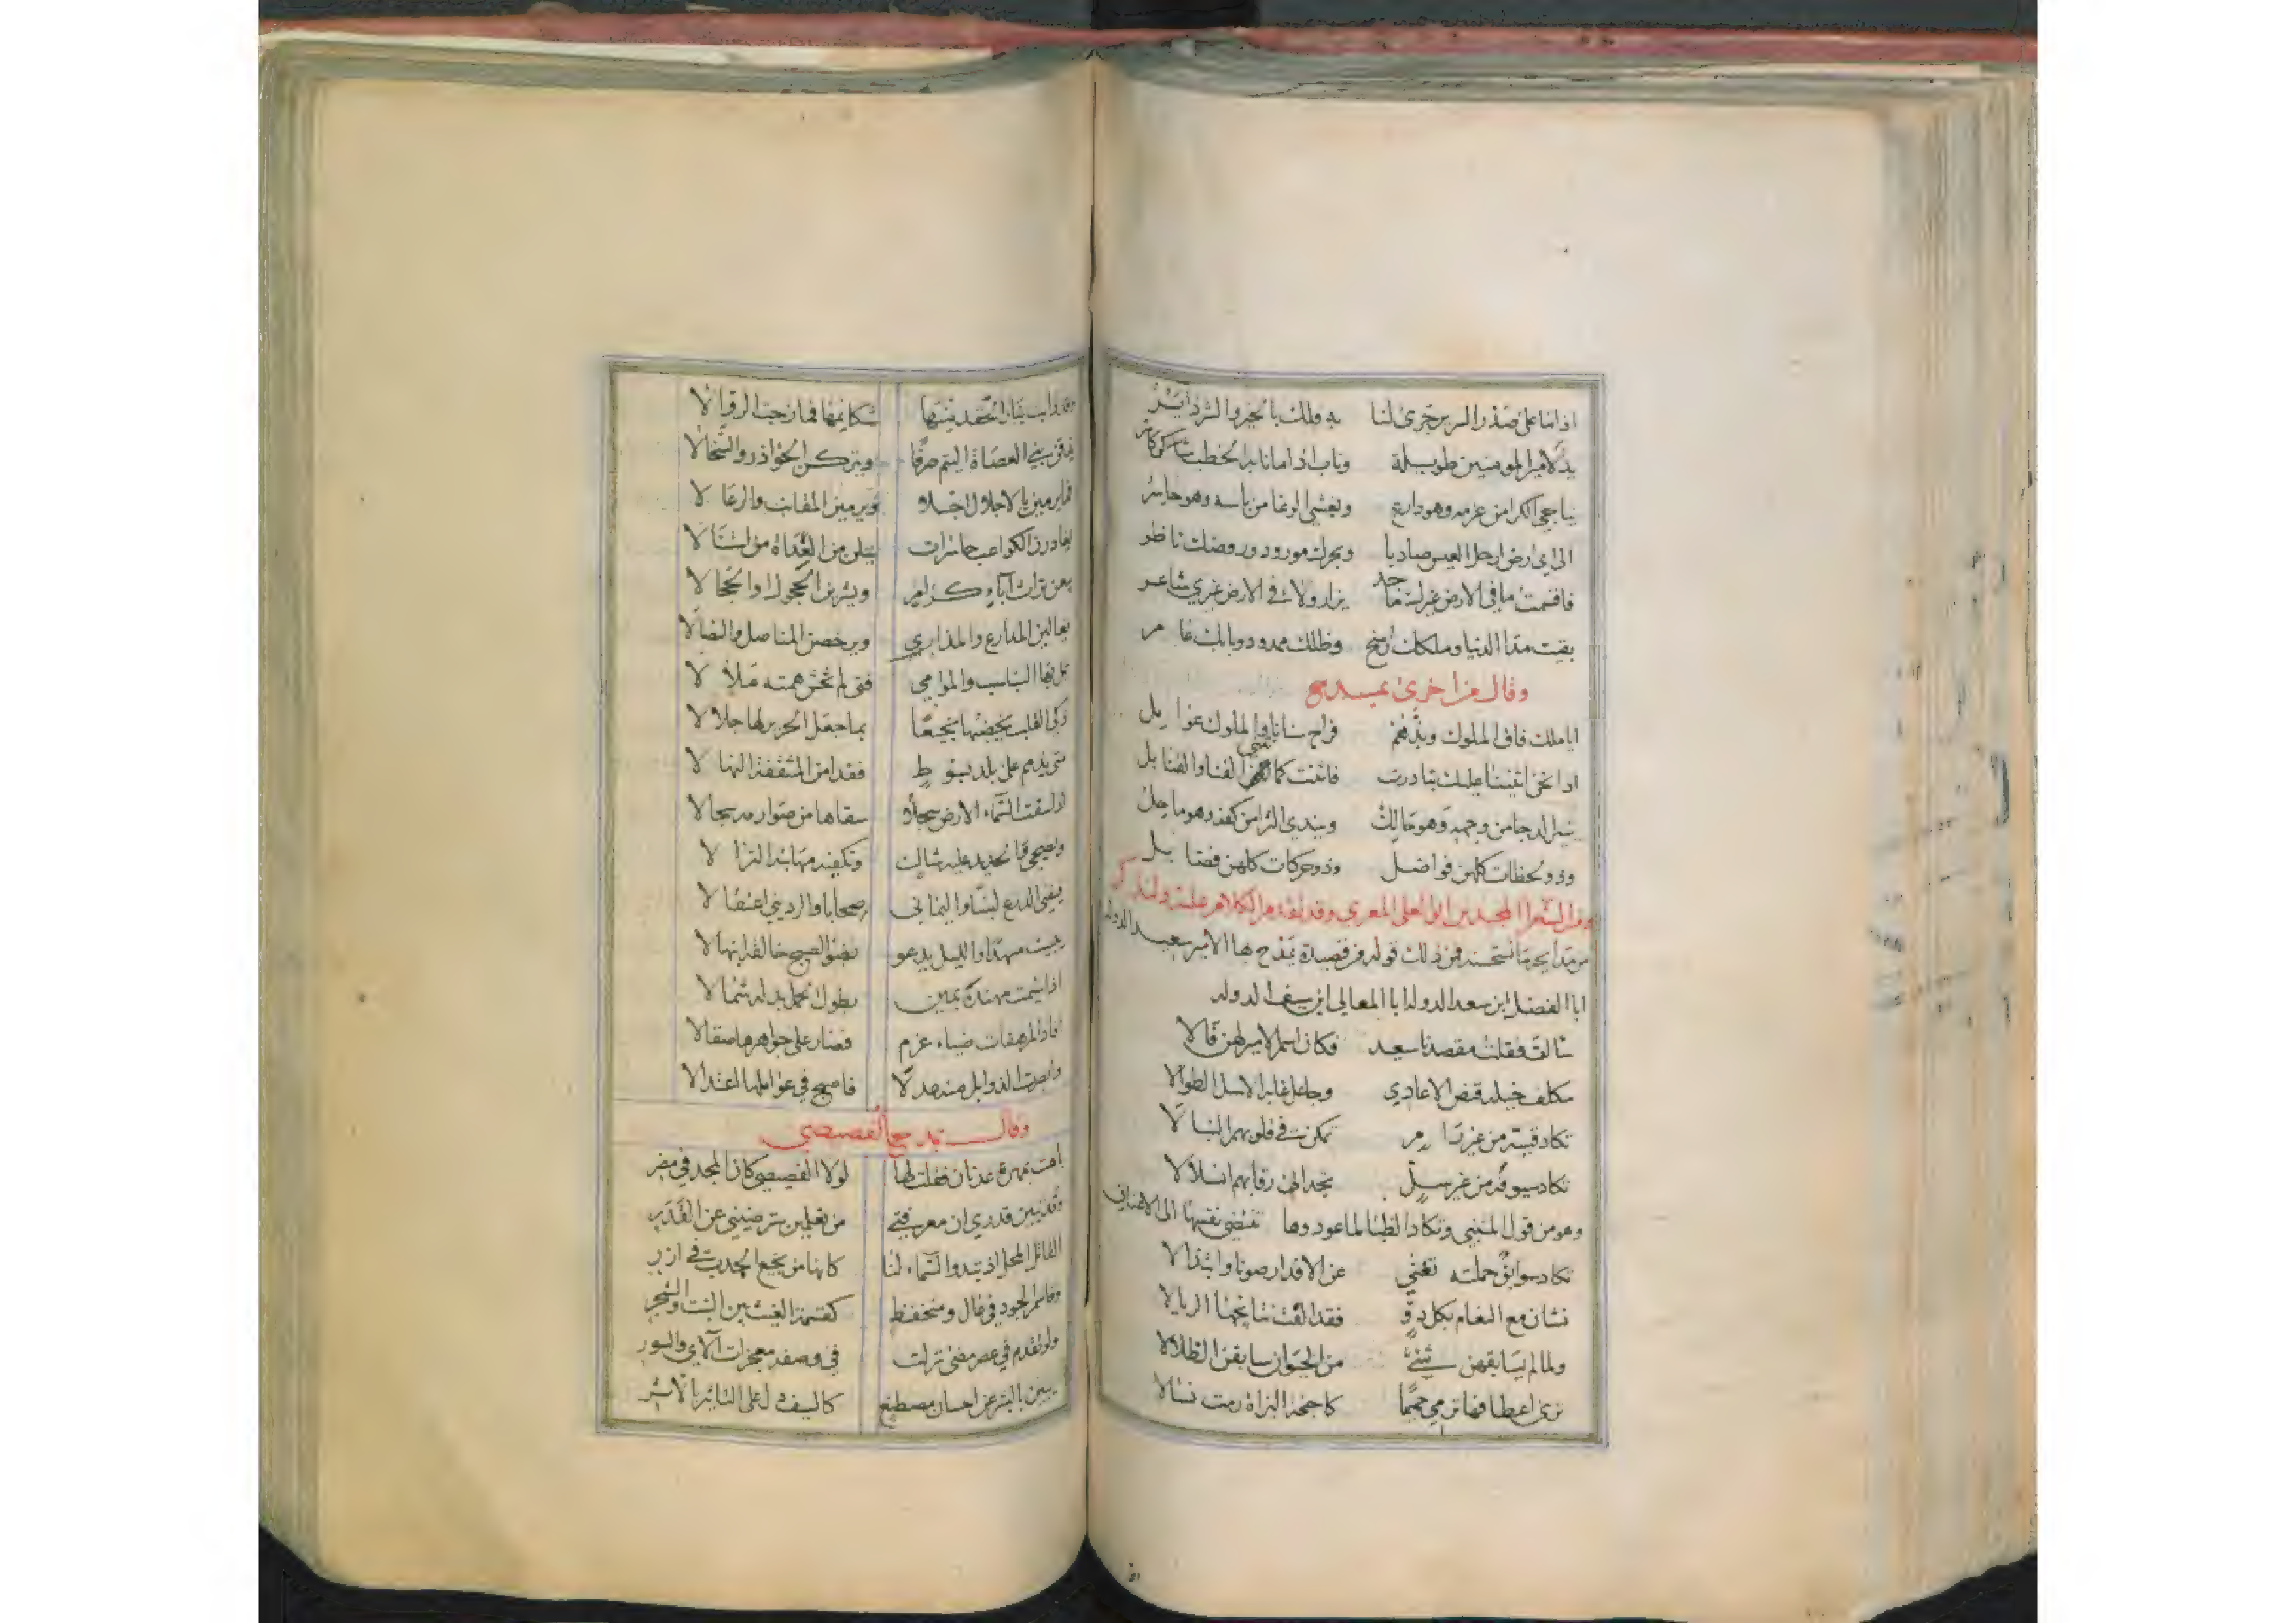 اذا ما على صدر السرير جرى لنا به فلك بالخير والشر داير
يد لامير المومنين طويلة وناب اذا ما نابه الخطب كاشر
يناجي الكرا من عزمه وهو دارع ويغشى الوغا من باسه وهو حاسر
الى اي ارض ارحل العيس صاديا وبحرك مورود وروضك ناظر
فاقسمت ما في الارض غيرك ماجد يزار ولا في الارض غيري شاعر
بقيت مدا الدنيا وملكك راسخ وظلك ممدود وبابك عامر
وقال من اخرى يمدح
ايا ملك فاق الملوك وبذهم فراح سنانا والملوك عوامل
اذا نحن اثنينا عليك تبادرت فاثنت كما نثني القنا والقنابل
ينير الدجا من وجهه وهو حالك ويندي الثرا من كفه وهو ماحل
وذو لحظات كلهن فواضل وذو حركات كلهن فضايل
ومن الشعرا المجيدين ابو العلى المعري وقد تقدم الكلام عليه ولنذكر
من مدايحه ما نستحسنه فمن ذلك قوله من قصيدة يمدح بها الامير سعيد الدولة
ابا الفضل ابن سعد الدولة ابا المعالي ابن سيف الدولة
سالت فقلت مقصدنا سعيد فكان اسم الامير لهن فالا
مكلف خيله قنص الاعادي وجاعل غابه الاسل الطوالا
تكاد قسيه من غير رام تمكن في قلوبهم النبالا
تكاد سيوفه من غير سل تجد الى رقابهم انسلالا
وهو من قول المتنبي وتكاد الظبا لما عودوها تنتضي نفسها الى الاعناق
تكاد سوابق حملته تغني عن الاقدار صونا وابتذالا
نشان مع النعام بكل دو فقد الفت نتايجها الريالا
ولما لم يسابقهن شيء من الحيوان سابقن الظلالا
ترى اعطافها ترمي حميما كاجنحة البزاة رمت نسالا
وقد ذابت بنار الحقد منها شكايمها فما زجت الرؤالا
يذقن بني العصاة اليتم صرفا ويتركن الجواذر والسخالا
فما يرمين بالاجلال اجلا ويرمين المقانب والرعالا
يغادرن الكواعب حاسرات ينلن من العداة من استنالا
يبعن تراث آباء كرام ويشرين الحجول او الحجالا
يغالين المدارع والمذاري ويرخصن المناصل والنصالا
تمل بها السباسب والموامي فتى لم تخش همته ملالا
ذكي القلب يخضبها نجيعا بما جعل الحرير لها جلالا
متى يذمم على بلد بسوط فقد امن المثقفة النهالا
اذا سقت السماء الارض سجلا سقاها من صوارمه سجالا
ويضحي والحديد عليه شاك وتكفيه مهابته النزالا
فيفني الدرع لبسا واليماني صحابا والرديني اعتقالا
يبيت مسهدا والليل يدعو بضوء الصبح خالقه ابتهالا
اذا شمت مهنده يمين بطول الحمل بدله شمالا
افاد المرهفات ضياء عزم فصار على جواهرها صقالا
وابصرت الذوابل منه عدلا فاصبح في عواملها اعتدالا
وقال يمدح الفصيصي
باهت بمهرة عدنان فقلت لها لولا الفصيصي كان المجد في مضر
وقد تبين قدري ان معرفتي من تعلمين سترضيني عن القدر
القاتل المحل اذ تبدوا السماء لنا كانها من نجيع الجدب في ازر
وقاسم الجود في عال ومنخفض كقسمة الغيث بين النبت والشجر
ولو تقدم في عصر مضى نزلت في وصفه معجزات الآي والسور
يبين بالبشر عن احسان مصطنع كالسيف دل على التاثير بالاثر